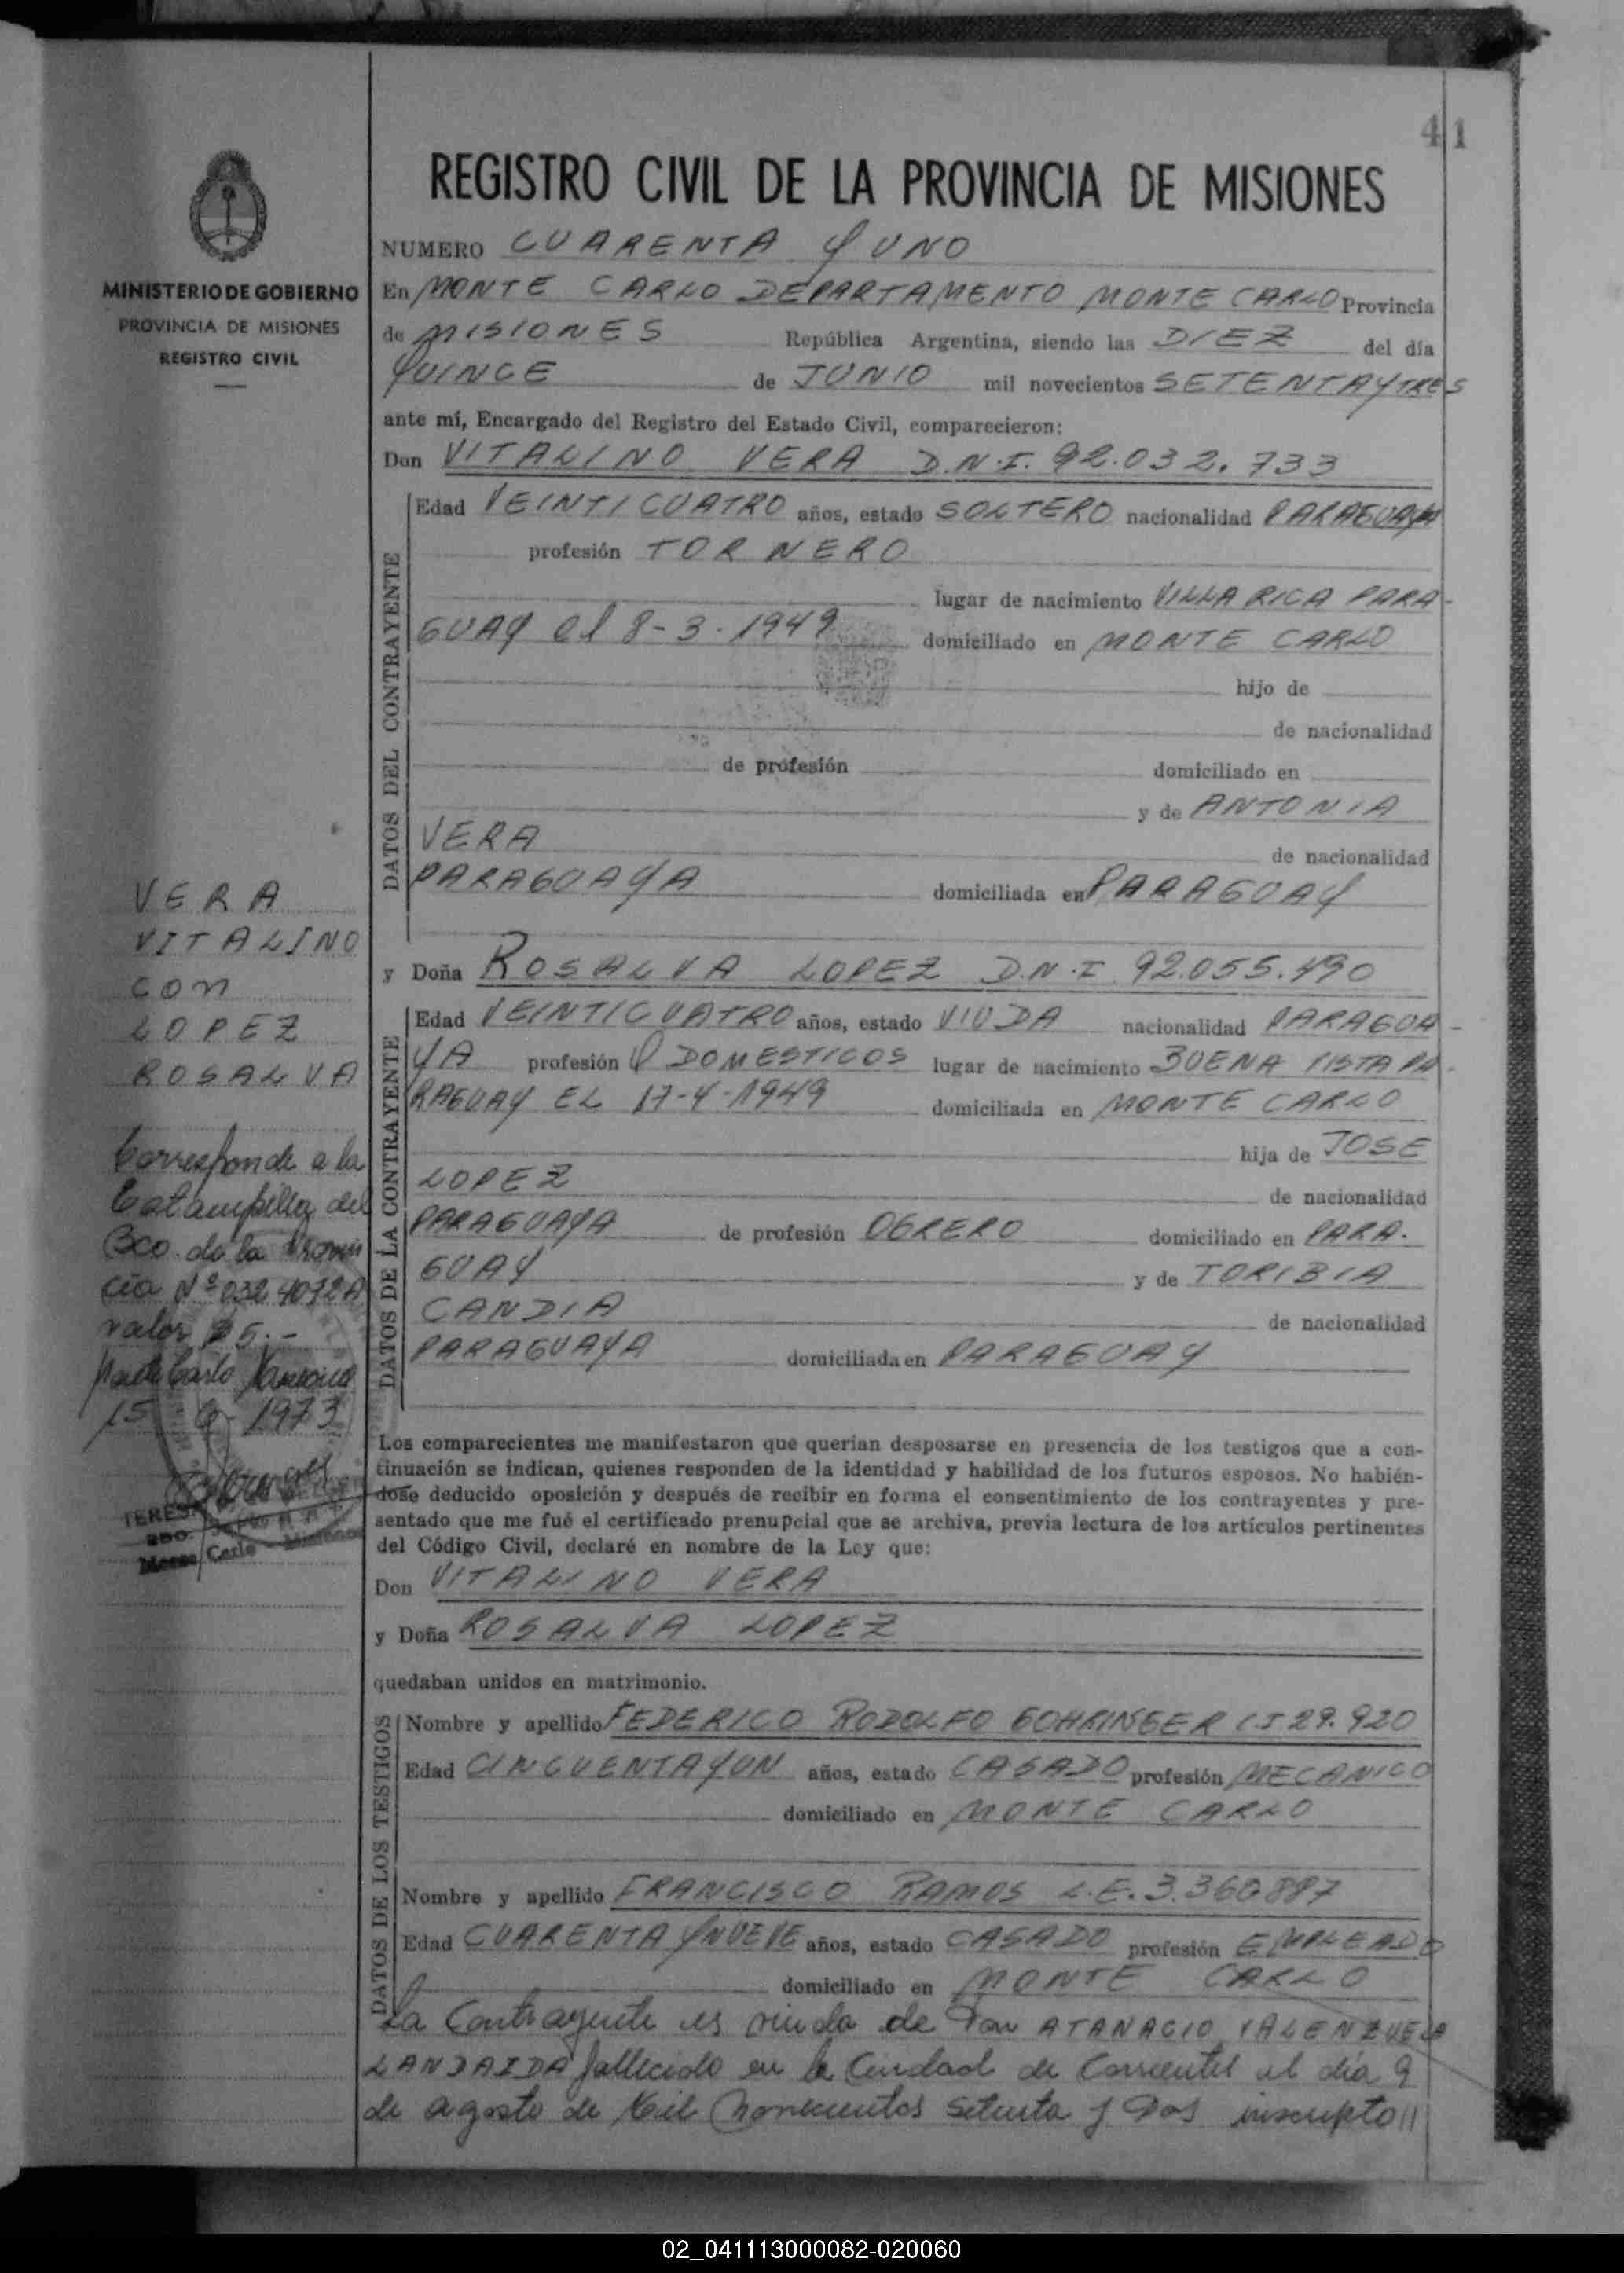 41
REGISTRO CIVIL DE LA PROVINCIA DE MISIONES
MINISTERIO DE GOBIERNO
PROVINCIA DE MISIONES
REGISTRO CIVIL
NUMERO CUARENTA Y UNO
En MONTE CARLO DEPARTAMENTO MONTE CARLO Provincia
de MISIONES República Argentina, siendo las DIEZ del día
QUINCE de JUNIO mil novecientos SETENTA Y TRES
ante mí, Encargado del Registro del Estado Civil, comparecieron:
Don VITALINO VERA D.N.I. 92.032.733
DATOS DEL CONTRAYENTE
Edad VEINTICUATRO años, estado SOLTERO nacionalidad PARAGUAYA
profesión TORNERO
lugar de nacimiento VILLA RICA PARA-
GUAY el 8-3-1949 domiciliado en MONTE CARLO
hijo de
de nacionalidad
de profesión domiciliado en
y de ANTONIA
VERA de nacionalidad
PARAGUAYA domiciliada en PARAGUAY
y Doña ROSALVA LOPEZ D.N.I 92.055.490
DATOS DE LA CONTRAYENTE
Edad VEINTICUATRO años, estado VIUDA nacionalidad PARAGUA-
YA profesión Q DOMESTICOS lugar de nacimiento BUENA VISTA PA-
RAGUAY EL 17-4-1949 domiciliada en MONTE CARLO
hija de JOSE
LOPEZ de nacionalidad
PARAGUAYA de profesión OBRERO domiciliado en PARA-
GUAY y de TORIBIA
CANDIA de nacionalidad
PARAGUAYA domiciliada en PARAGUAY
VERA
VITALINO
con
LOPEZ
ROSALVA
Corresponde a la
Estampilla del
Bco. de la Provin
cia Nº 032 4072A
valor $ 5.-
Monte Carlo Misiones
15 6 1973
TERESA
Monte Carlo Misiones
Los comparecientes me manifestaron que querían desposarse en presencia de los testigos que a con-
tinuación se indican, quienes responden de la identidad y habilidad de los futuros esposos. No habién-
dose deducido oposición y después de recibir en forma el consentimiento de los contrayentes y pre-
sentado que me fué el certificado prenupcial que se archiva, previa lectura de los artículos pertinentes
del Código Civil, declaré en nombre de la Ley que:
Don VITALINO VERA
y Doña ROSALVA LOPEZ
quedaban unidos en matrimonio.
DATOS DE LOS TESTIGOS
Nombre y apellido FEDERICO RODOLFO GOHRINGER C.I 29.920
Edad CINCUENTA Y UN años, estado CASADO profesión MECANICO
domiciliado en MONTE CARLO
Nombre y apellido FRANCISCO RAMOS L.E. 3.360887
Edad CUARENTA Y NUEVE años, estado CASADO profesión EMPLEADO
domiciliado en MONTE CARLO
La Contrayente es viuda de Don ATANACIO VALENZUELA
LANDAIDA fallecido en la Ciudad de Corrientes el día 9
de agosto de Mil Novecientos Setenta y Dos inscripto//
02_041113000082-020060